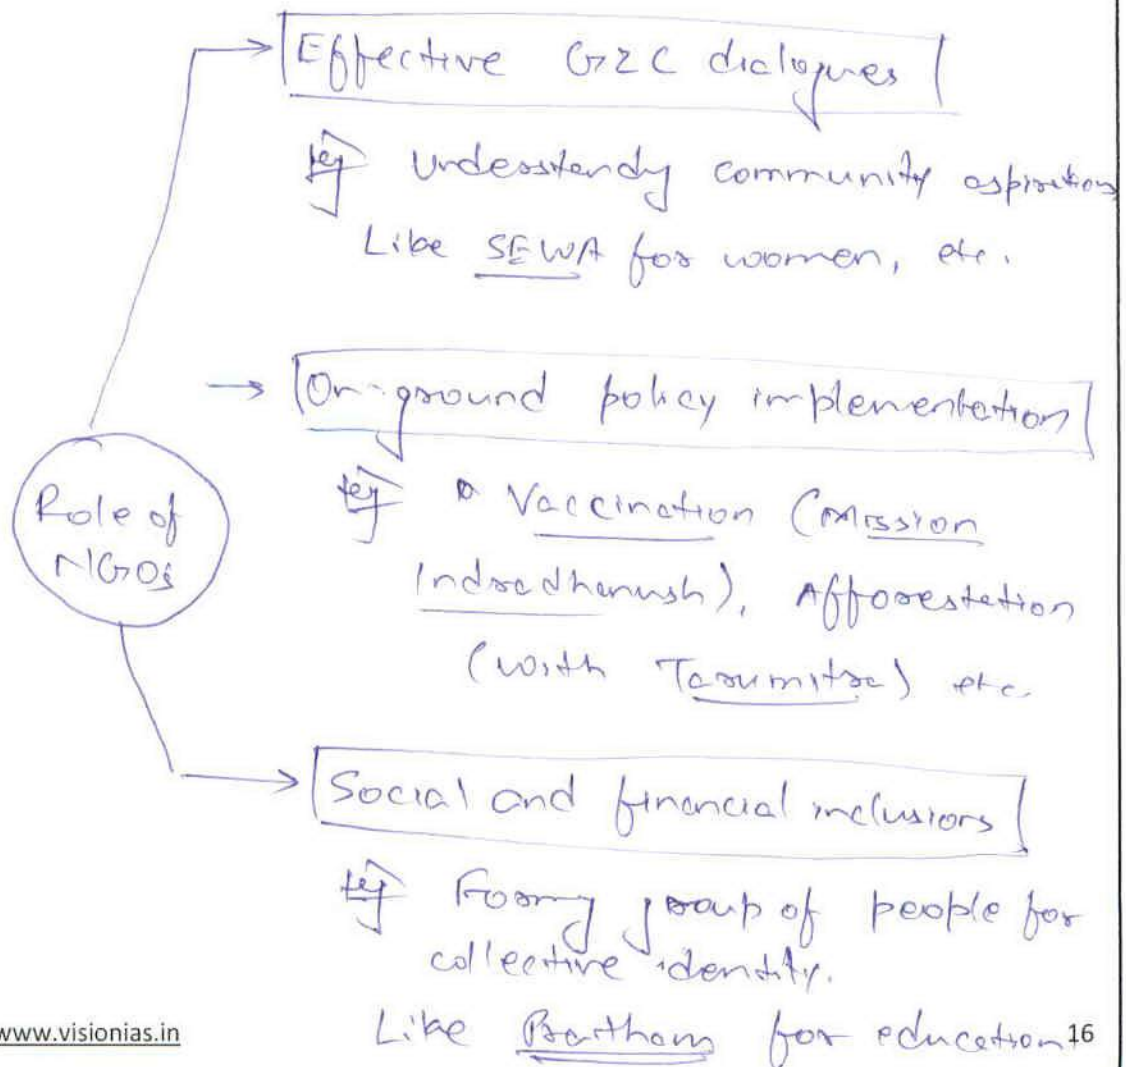 Effective G2C dialogues
eg Understandg community aspirations
Like SEWA for women, etc.
On-ground policy implementation
eg Vaccination (Mission
Indradhanush), Afforestation
(with Tarumitra) etc.
Role of
NGOs
Social and financial inclusions
eg Formg group of people for
collective identity.
Like Pratham for education
www.visionias.in
16